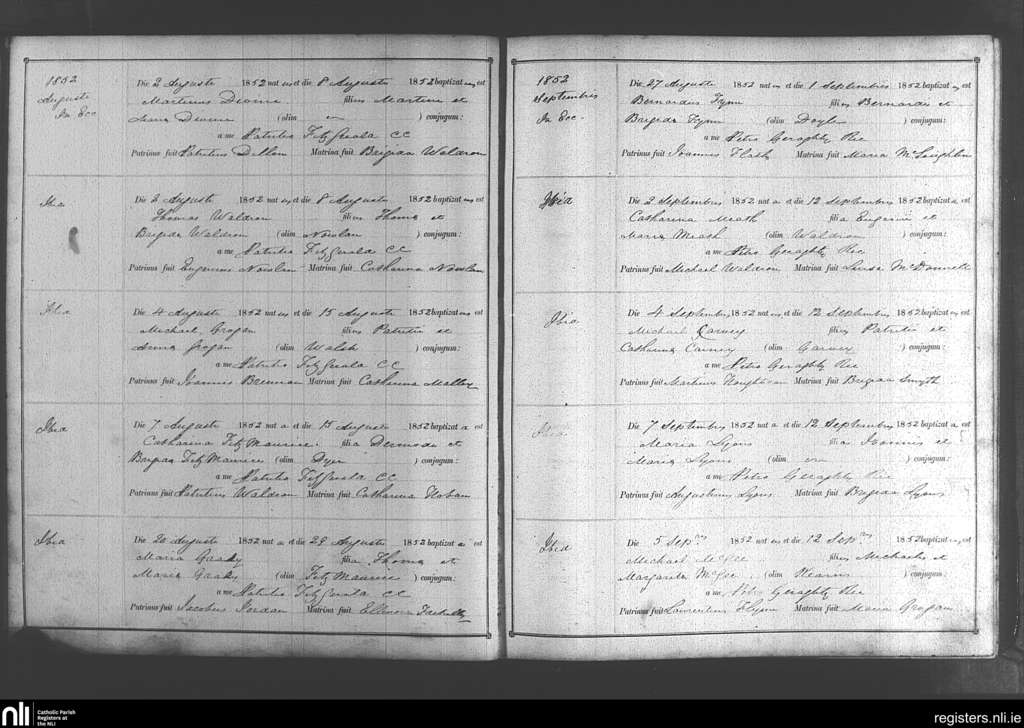 1852
Augusti
In Ecc
Die 2 Augusti 1852 natus et die 8 Augusti 1852 baptizatus est
Martinus filius Martini et
(olim ) conjugum:
a me Patritio FitzGerald CC
Patrinus fuit Patritius Dillon Matrina fuit Brigida Waldron
Ibid
Die 2 Augusti 1852 natus et die 8 Augusti 1852 baptizatus est
Thomas Waldron filius Thomæ et
Brigida Waldron (olim Nowlan ) conjugum:
a me Patritio FitzGerald CC
Patrinus fuit Eugenius Nowlan Matrina fuit Catharina Nowlan
Ibid
Die 4 Augusti 1852 natus et die 15 Augusti 1852 baptizatus est
Michael Grogan filius Patritii et
Anna Grogan (olim Walsh ) conjugum:
a me Patritio FitzGerald CC
Patrinus fuit Joannes Brennan Matrina fuit Catharina Malloy
Ibid
Die 7 Augusti 1852 nata et die 15 Augusti 1852 baptizata est
Catharina FitzMaurice filia et
Brigida FitzMaurice (olim Dyer ) conjugum:
a me Patritio FitzGerald CC
Patrinus fuit Patritius Waldron Matrina fuit Catharina Hoban
Ibid
Die 20 Augusti 1852 nata et die 29 Augusti 1852 baptizata est
Maria filia Thomæ et
Maria (olim FitzMaurice ) conjugum:
a me Patritio FitzGerald CC
Patrinus fuit Jacobus Jordan Matrina fuit Ellenora
1852
Septembris
In Ecc
Die 27 Augusti 1852 natus et die 1 Septembris 1852 baptizatus est
Bernardus Flynn filius Bernardi et
Brigida Flynn (olim Doyle ) conjugum:
a me Petro Geraghty Rec
Patrinus fuit Joannes Matrina fuit Maria McLoughlin
Ibid
Die 2 Septembris 1852 nata et die 12 Septembris 1852 baptizata est
Catharina Meath filia Eugenii et
Maria Meath (olim Waldron ) conjugum:
a me Petro Geraghty Rec
Patrinus fuit Michael Waldron Matrina fuit Luisa McDonnell
Ibid
Die 4 Septembris 1852 natus et die 12 Septembris 1852 baptizatus est
Michael Carney filius Patritii et
Catharina Carney (olim Garvey ) conjugum:
a me Petro Geraghty Rec
Patrinus fuit Martinus Matrina fuit Brigida Smyth
Ibid
Die 7 Septembris 1852 nata et die 12 Septembris 1852 baptizata est
Maria Lyons filia Joannis et
Maria Lyons (olim ) conjugum:
a me Petro Geraghty Rec
Patrinus fuit Augustinus Lyons Matrina fuit Brigida Lyons
Ibid
Die 5 Sepris 1852 natus et die 12 Sepris 1852 baptizatus est
Michael McGee filius Michaelis et
Margarita McGee (olim Kearns ) conjugum:
a me Petro Geraghty Rec
Patrinus fuit Laurentius Flynn Matrina fuit Maria Grogan
nli Catholic Parish
Registers at
the NLI
registers.nli.ie